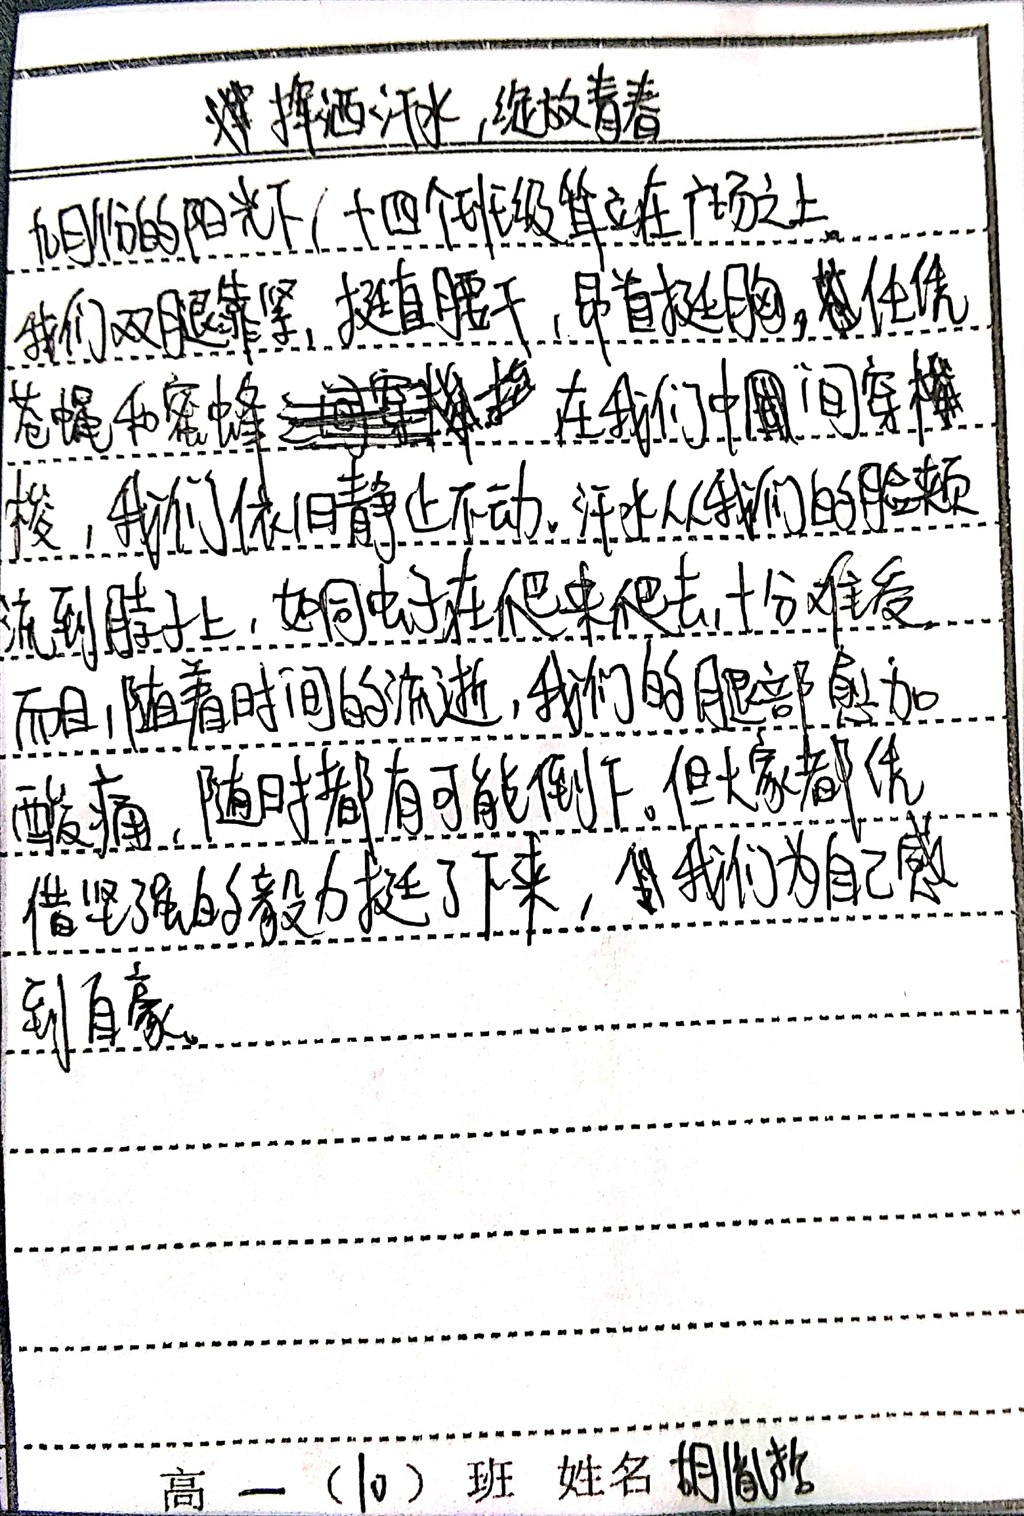 挥洒汗水,绽放青春
九月份的阳光下,十四个班级耸立在广场之上。
我们双腿靠紧,挺直腰干,昂首挺胸,任凭
苍蝇和蜜蜂在我们中间穿
梭,我们依旧静止不动。汗水从我们的脸颊
流到脖子上,如同虫子在爬来爬去,十分难受。
而且,随着时间的流逝,我们的腿部愈加
酸痛,随时都有可能倒下。但大家都凭
借坚强的毅力挺了下来,我们为自己感
到自豪。
高一(10)班 姓名 胡胤哲